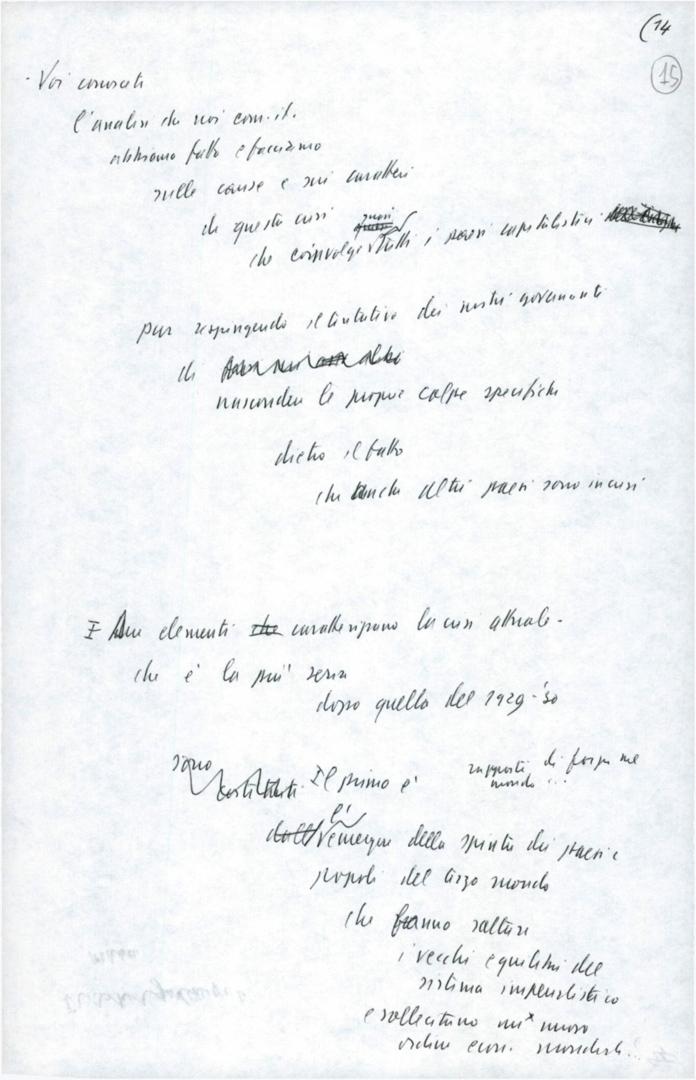 (14
15
- Voi conoscete
l'analisi che noi com.ti.
abbiamo fatto e facciamo
sulle cause e sui caratteri
di questa crisi
che coinvolge tutti i paesi capitalistici
pur respingendo il tentativo dei nostri governanti
di
nascondere le proprie colpe specifiche
dietro il fatto
che anche altri paesi sono in crisi
I Due elementi che caratterizzano la crisi attuale -
che è la più seria
dopo quella del 1929-'30
sono
costituiti Il primo è rapporti di forza nel
mondo ...
l'
dall' emergere della spinta dei paesi e
popoli del terzo mondo
che fanno saltare
i vecchi equilibri del
sistema imperialistico
e sollecitano un nuovo
ordine econ. mondiale